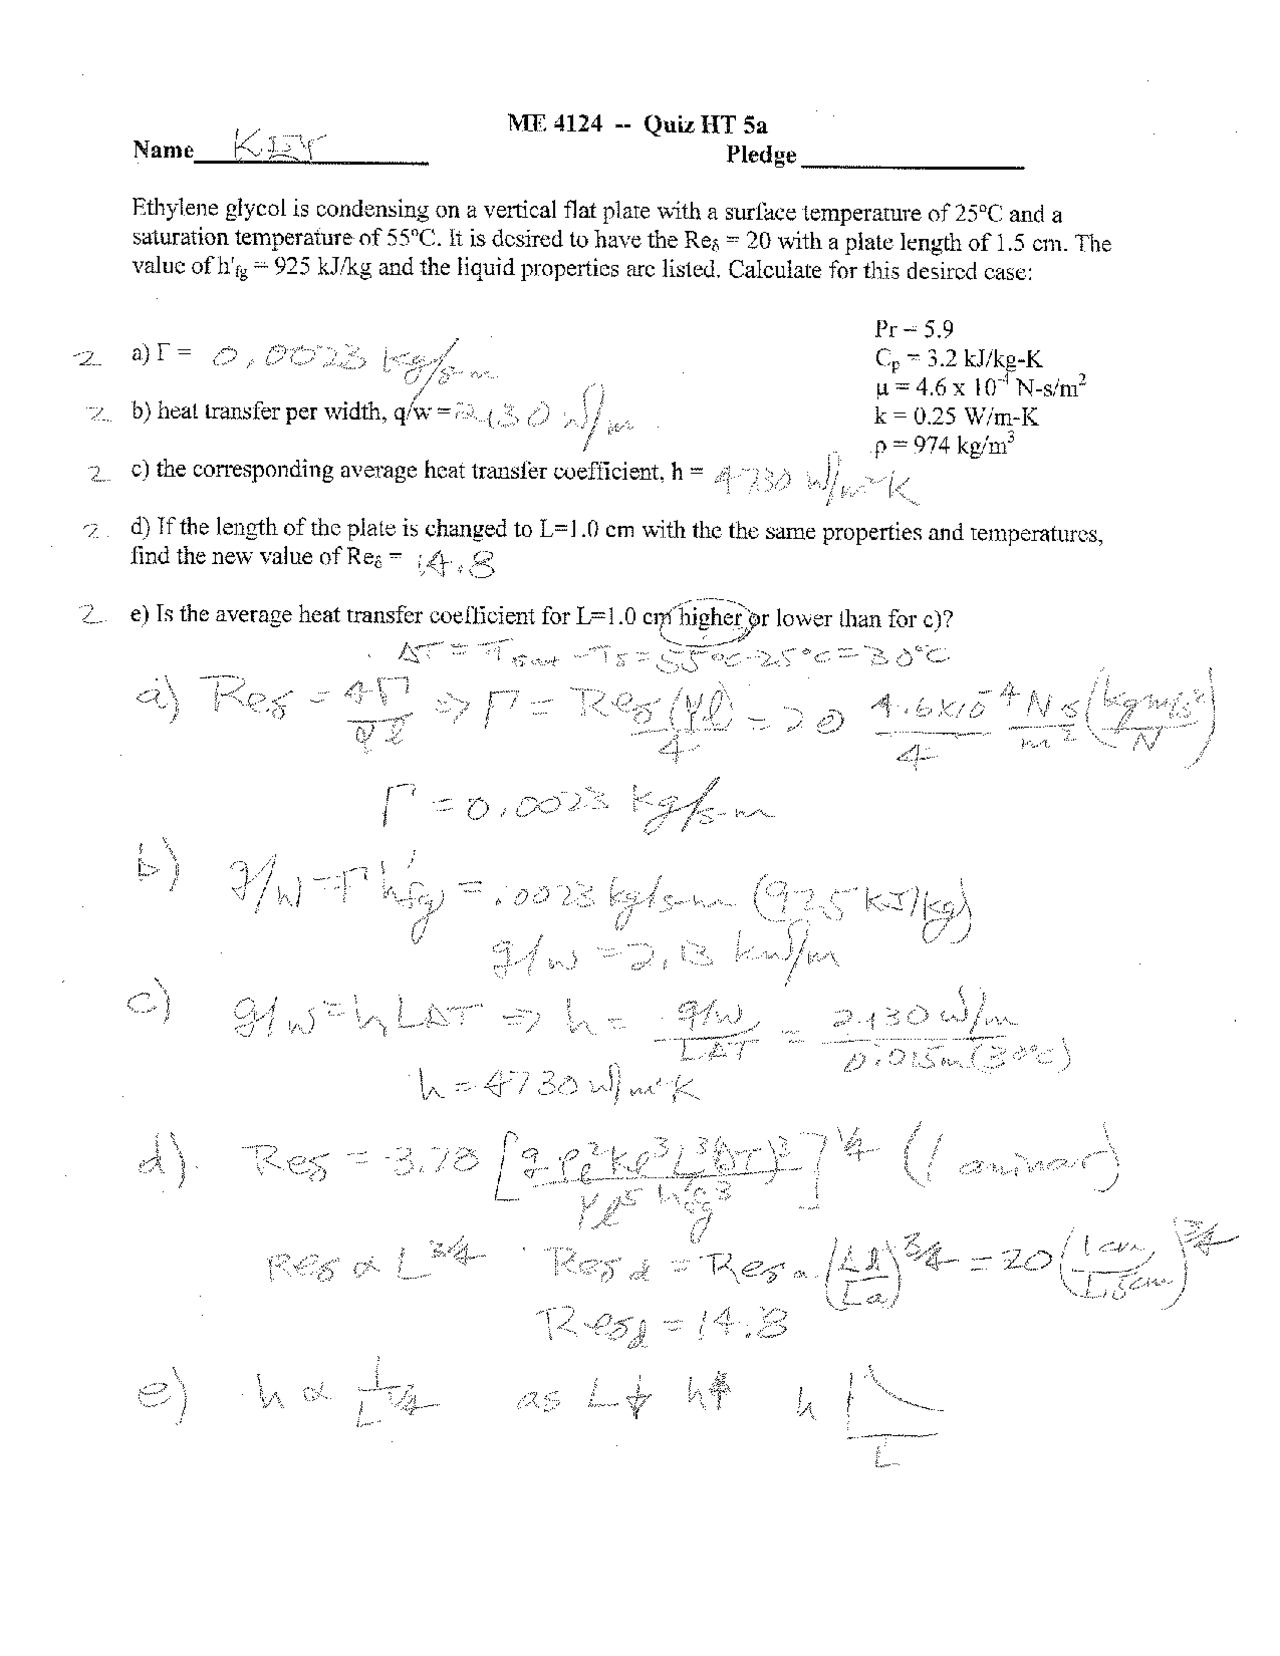 ME 4124 -- Quiz HT 5a
Name KEY Pledge
Ethylene glycol is condensing on a vertical flat plate with a surface temperature of 25°C and a
saturation temperature of 55°C. It is desired to have the Reδ = 20 with a plate length of 1.5 cm. The
value of h'fg = 925 kJ/kg and the liquid properties are listed. Calculate for this desired case:
Pr = 5.9
2 a) Γ = 0.0023 kg/s-m
Cp = 3.2 kJ/kg-K
μ = 4.6 x 10⁻⁴ N-s/m²
2 b) heat transfer per width, q/w = 2130 W/m
k = 0.25 W/m-K
ρ = 974 kg/m³
2 c) the corresponding average heat transfer coefficient, h = 4730 W/m²K
2. d) If the length of the plate is changed to L=1.0 cm with the the same properties and temperatures,
find the new value of Reδ = 14.8
2. e) Is the average heat transfer coefficient for L=1.0 cm higher or lower than for c)?
ΔT = Tsat - Ts = 55°C-25°C = 30°C
a) Reδ = 4Γ/μl ⇒ Γ = Reδ(μl)/4 = 20 4.6x10⁻⁴/4 N s/m² (kg m/s²/N)
Γ = 0.0023 kg/s-m
b) q/w = Γ h'fg = .0023 kg/s-m (925 kJ/kg)
q/w = 2.13 kW/m
c) q/w = h LΔT ⇒ h = q/w/LΔT = 2130 W/m/0.015m(30°C)
h = 4730 W/m²K
d). Reδ = 3.78 [g ρl² kl³ L³(ΔT)³/μl⁵ h'fg³]^1/4 (laminar)
Reδ ∝ L^3/4 Reδd = Reδa (Ld/La)^3/4 = 20 (1cm/1.5cm)^3/4
Reδd = 14.8
e) h ∝ 1/L^1/4 as L↓ h↑ h
L